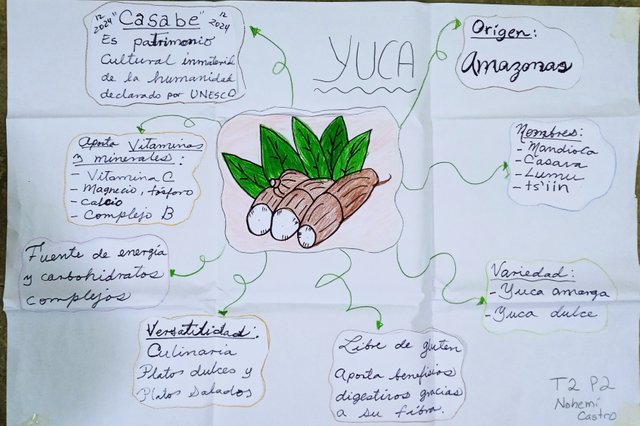 YUCA
12 "Casabe" 12
2024 2024
Es patrimonio
Cultural inmaterial
de la humanidad
declarado por UNESCO
Origen:
Amazonas
Aporta Vitaminas
y minerales:
- Vitamina C
- Magnecio, fósforo
- Calcio
- Complejo B
Nombres:
- Mandiola
- Casava
- Lumu
- ts'iin
Fuente de energía
y carbohidratos
complejos
Variedad:
- Yuca amarga
- Yuca dulce
Versatilidad:
Culinaria
Platos dulces y
Platos Salados
Libre de gluten
Aporta beneficios
digestivos gracias
a su fibra.
T2 P2
Nohemí
Castro